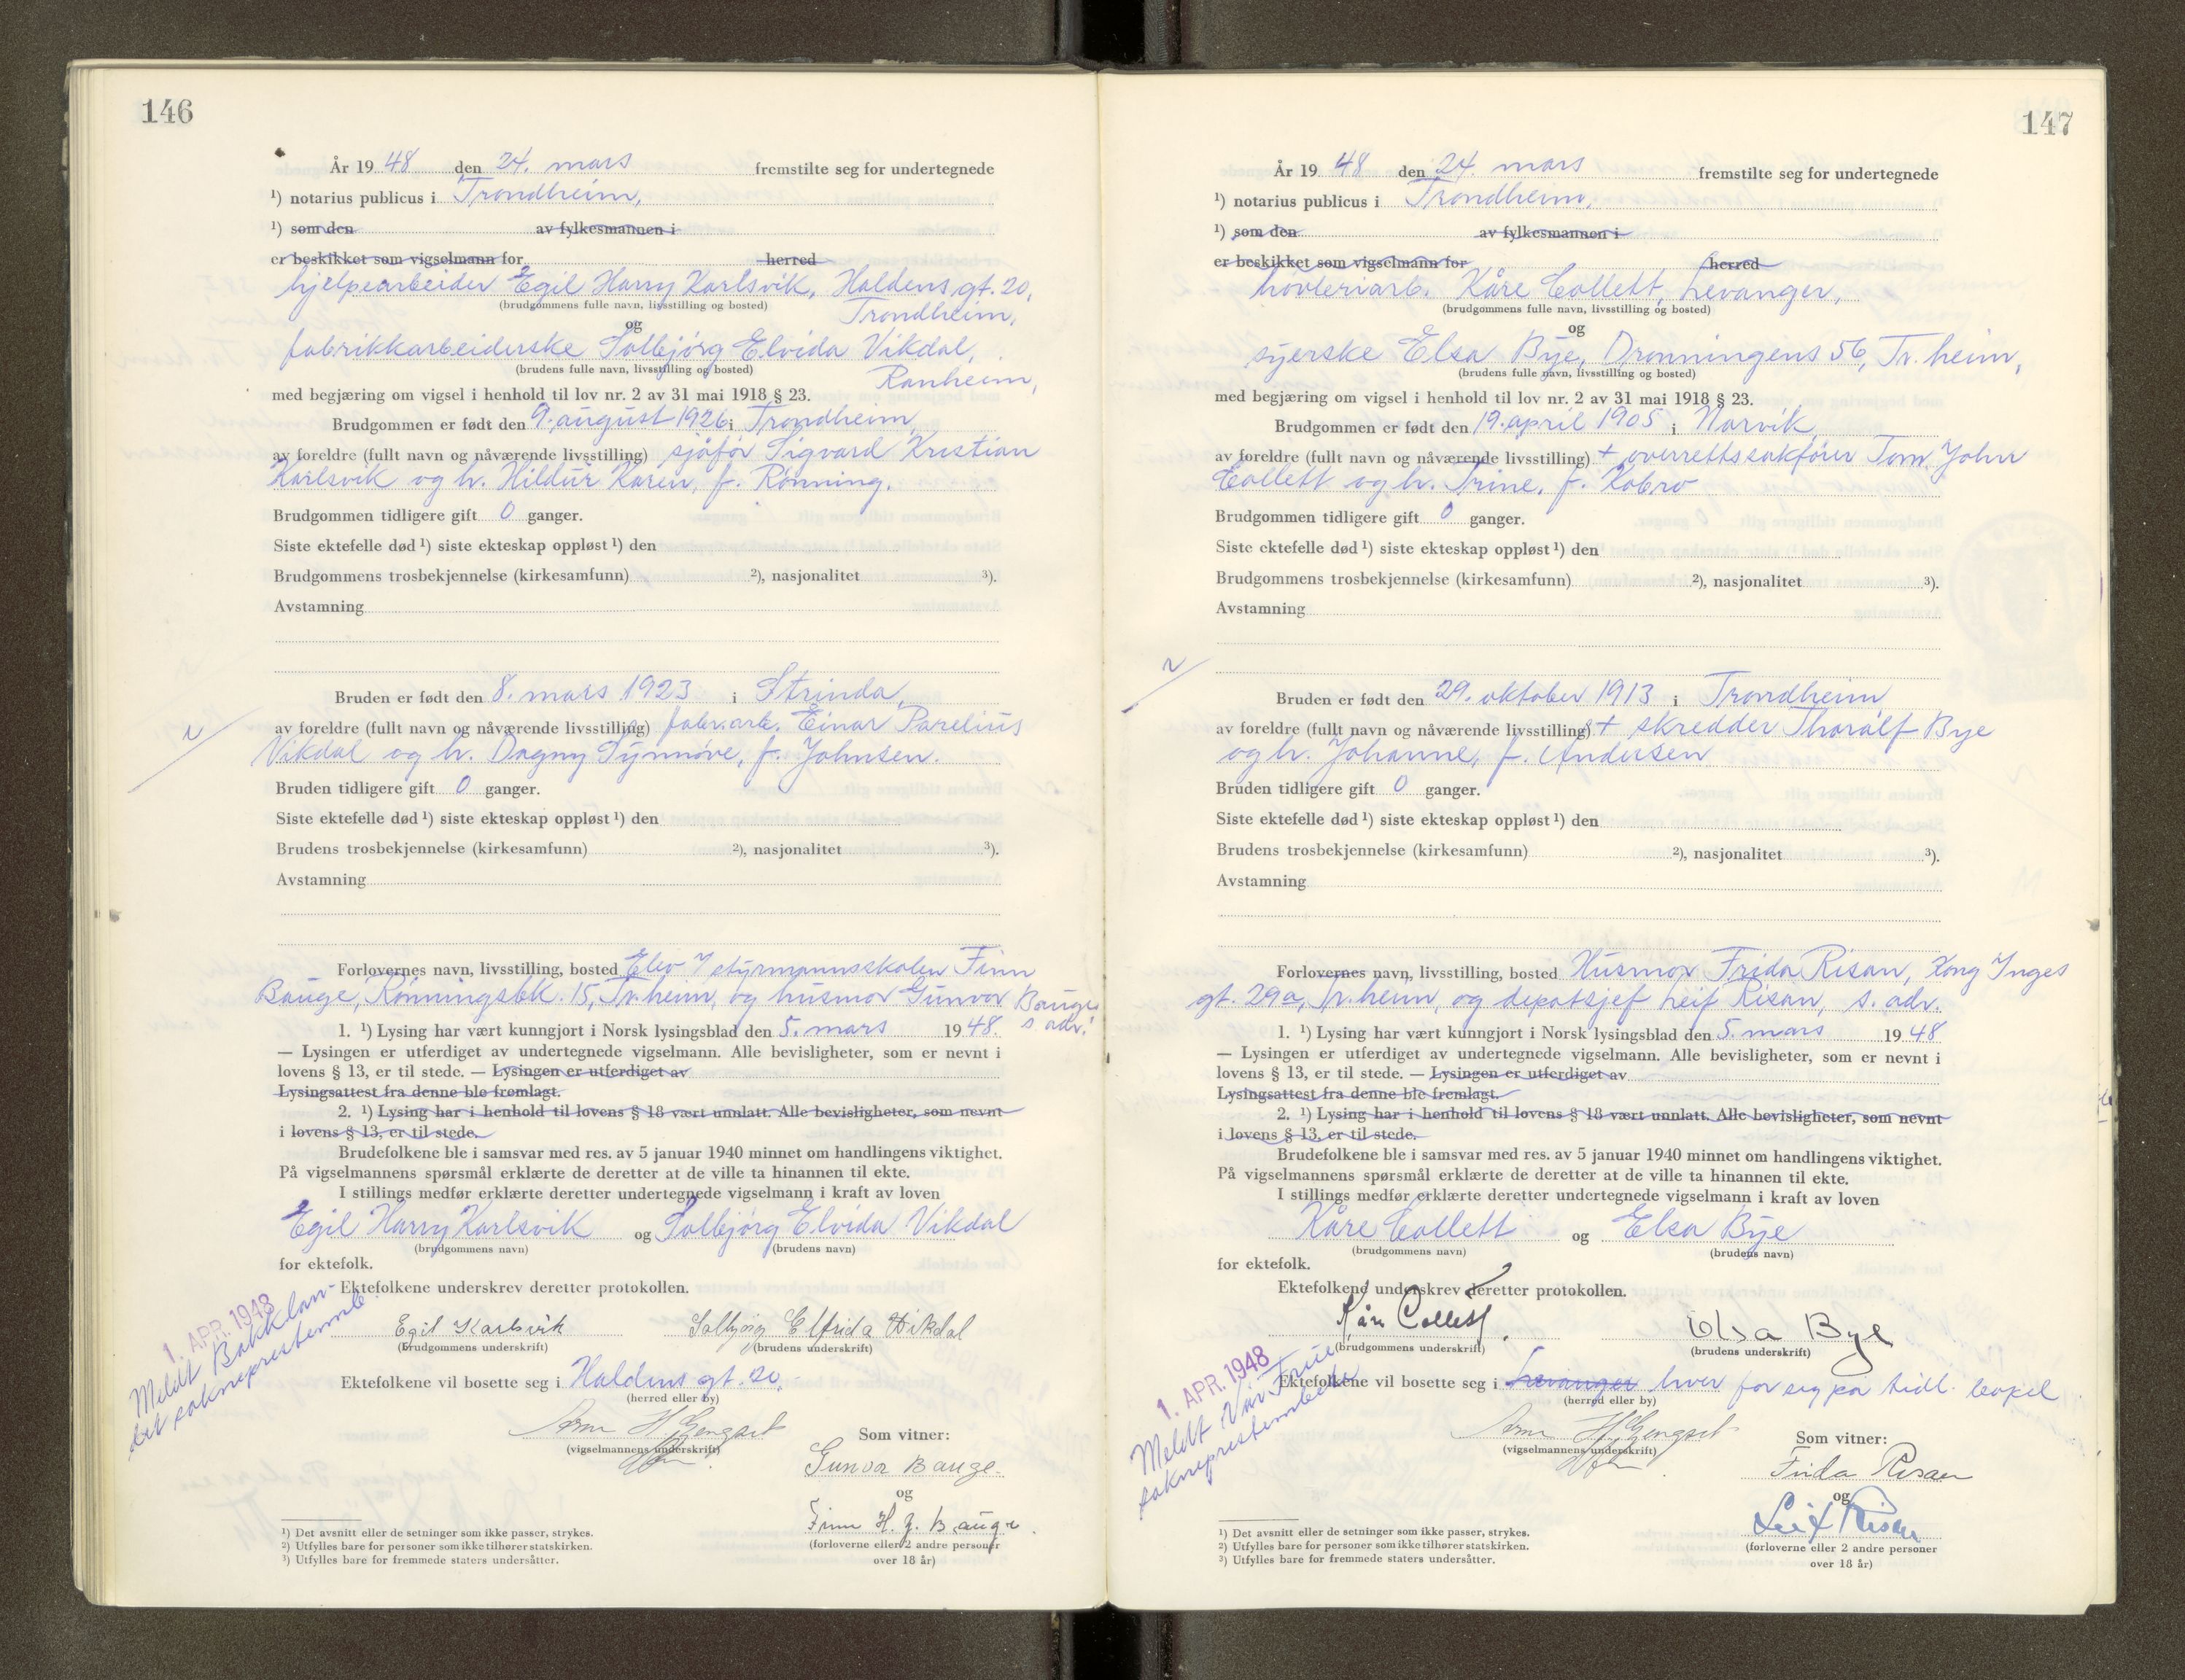 146
År 1948 den 24. mars fremstilte seg for undertegnede
¹) notarius publicus i Trondheim,
¹) som den av fylkesmannen i
er beskikket som vigselmann for herred
hjelpearbeider Egil Harry Karlsvik, Haldens gt. 20,
(brudgommens fulle navn, livsstilling og bosted) Trondheim,
og
fabrikkarbeiderske Solbjørg Elvida Vikdal,
(brudens fulle navn, livsstilling og bosted) Ranheim,
med begjæring om vigsel i henhold til lov nr. 2 av 31 mai 1918 § 23.
Brudgommen er født den 9. august 1926 i Trondheim,
av foreldre (fullt navn og nåværende livsstilling) sjåfør Sigvard Kristian
Karlsvik og h. Hildur Karen, f. Rønning.
Brudgommen tidligere gift 0 ganger.
Siste ektefelle død ¹) siste ekteskap oppløst ¹) den
Brudgommens trosbekjennelse (kirkesamfunn) ²), nasjonalitet ³).
Avstamning
Bruden er født den 8. mars 1923 i Strinda,
av foreldre (fullt navn og nåværende livsstilling) fabr.arb. Einar Parelius
Vikdal og h. Dagny Synnøve, f. Johnsen.
Bruden tidligere gift 0 ganger.
Siste ektefelle død ¹) siste ekteskap oppløst ¹) den
Brudens trosbekjennelse (kirkesamfunn) ²), nasjonalitet ³).
Avstamning
Forlovernes navn, livsstilling, bosted Elev v/ styrmannsskolen Finn
Bauge, Rønningsbk. 15, Tr.heim, og husmor Gunvor Bauge
s. adr.
1. ¹) Lysing har vært kunngjort i Norsk lysingsblad den 5. mars 1948.
— Lysingen er utferdiget av undertegnede vigselmann. Alle bevisligheter, som er nevnt i
lovens § 13, er til stede. — Lysingen er utferdiget av
Lysingsattest fra denne ble fremlagt.
2. ¹) Lysing har i henhold til lovens § 18 vært unnlatt. Alle bevisligheter, som nevnt
i lovens § 13, er til stede.
Brudefolkene ble i samsvar med res. av 5 januar 1940 minnet om handlingens viktighet.
På vigselmannens spørsmål erklærte de deretter at de ville ta hinannen til ekte.
I stillings medfør erklærte deretter undertegnede vigselmann i kraft av loven
Egil Harry Karlsvik og Solbjørg Elvida Vikdal
(brudgommens navn) (brudens navn)
for ektefolk.
Ektefolkene underskrev deretter protokollen.
1. APR. 1948
Meldt Bakklan-
det sokneprestembe
Egil Karlsvik Solbjørg Elfrida Vikdal
(brudgommens underskrift) (brudens underskrift)
Ektefolkene vil bosette seg i Haldens gt. 20.
(herred eller by)
(vigselmannens underskrift)
Som vitner:
Gunvor Bauge.
og
Finn H. J. Bauge.
(forloverne eller 2 andre personer
over 18 år)
¹) Det avsnitt eller de setninger som ikke passer, strykes.
²) Utfylles bare for personer som ikke tilhører statskirken.
³) Utfylles bare for fremmede staters undersåtter.
147
År 1948 den 24. mars fremstilte seg for undertegnede
¹) notarius publicus i Trondheim,
¹) som den av fylkesmannen i
er beskikket som vigselmann for herred
høvleriarb. Kåre Collett, Levanger,
(brudgommens fulle navn, livsstilling og bosted)
og
syerske Elsa Bye, Dronningens 56, Tr.heim,
(brudens fulle navn, livsstilling og bosted)
med begjæring om vigsel i henhold til lov nr. 2 av 31 mai 1918 § 23.
Brudgommen er født den 19. april 1905 i Narvik,
av foreldre (fullt navn og nåværende livsstilling) + overrettssakfører Tom John
Collett og h. Trine, f. Kobro
Brudgommen tidligere gift 0 ganger.
Siste ektefelle død ¹) siste ekteskap oppløst ¹) den
Brudgommens trosbekjennelse (kirkesamfunn) ²), nasjonalitet ³).
Avstamning
Bruden er født den 29. oktober 1913 i Trondheim,
av foreldre (fullt navn og nåværende livsstilling) + skredder Tharalf Bye
og h. Johanne, f. Andersen
Bruden tidligere gift 0 ganger.
Siste ektefelle død ¹) siste ekteskap oppløst ¹) den
Brudens trosbekjennelse (kirkesamfunn) ²), nasjonalitet ³).
Avstamning
Forlovernes navn, livsstilling, bosted Husmor Frida Risan, Kong Inges
gt. 29a, Tr.heim, og depotsjef Leif Risan, s. adr.
1. ¹) Lysing har vært kunngjort i Norsk lysingsblad den 5. mars 1948
— Lysingen er utferdiget av undertegnede vigselmann. Alle bevisligheter, som er nevnt i
lovens § 13, er til stede. — Lysingen er utferdiget av
Lysingsattest fra denne ble fremlagt.
2. ¹) Lysing har i henhold til lovens § 18 vært unnlatt. Alle bevisligheter, som nevnt
i lovens § 13, er til stede.
Brudefolkene ble i samsvar med res. av 5 januar 1940 minnet om handlingens viktighet.
På vigselmannens spørsmål erklærte de deretter at de ville ta hinannen til ekte.
I stillings medfør erklærte deretter undertegnede vigselmann i kraft av loven
Kåre Collett og Elsa Bye
(brudgommens navn) (brudens navn)
for ektefolk.
Ektefolkene underskrev deretter protokollen.
Kåre Collett. Elsa Bye
(brudgommens underskrift) (brudens underskrift)
1. APR. 1948
Meldt Vår Frue
sokneprestembede
Ektefolkene vil bosette seg i Levanger hver for seg på tidl. bopel
(herred eller by)
(vigselmannens underskrift)
Som vitner:
Frida Risan
og
Leif Risan
(forloverne eller 2 andre personer
over 18 år)
¹) Det avsnitt eller de setninger som ikke passer, strykes.
²) Utfylles bare for personer som ikke tilhører statskirken.
³) Utfylles bare for fremmede staters undersåtter.